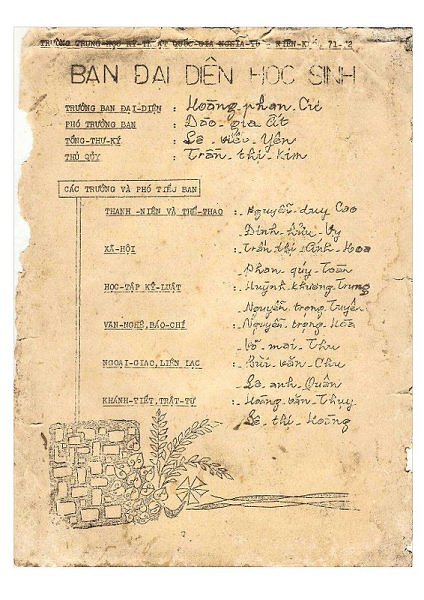 TRƯỜNG TRUNG-HỌC KỸ-THUẬT QUỐC-GIA NGHĨA-TỬ - NIÊN-KHÓA 71-72
BAN ĐẠI DIỆN HỌC SINH
TRƯỞNG BAN ĐẠI-DIỆN : Hoàng phan Cư
PHÓ TRƯỞNG BAN : Đào gia Ất
TỔNG-THƯ-KÝ : Lê Yên
THỦ QŨY : Trần thị Kim
CÁC TRƯỞNG VÀ PHÓ TIỂU BAN
THANH -NIÊN VÀ THỂ-THAO : Nguyễn duy Cao
Đinh hữu Vy
XÃ-HỘI : Trần thị Ánh Hoa
Phan quý Toàn
HỌC-TẬP KỶ-LUẬT : Huỳnh khương Trung
Nguyễn trọng Tuyên
VĂN-NGHỆ,BÁO-CHÍ : Nguyễn trọng Hòa
Võ mai Thu
NGOẠI-GIAO,LIÊN LẠC : Bùi văn Chu
Lê anh Quân
KHÁNH-TIẾT,TRẬT-TỰ : Hoàng văn Thuy
Lê thị Hoàng